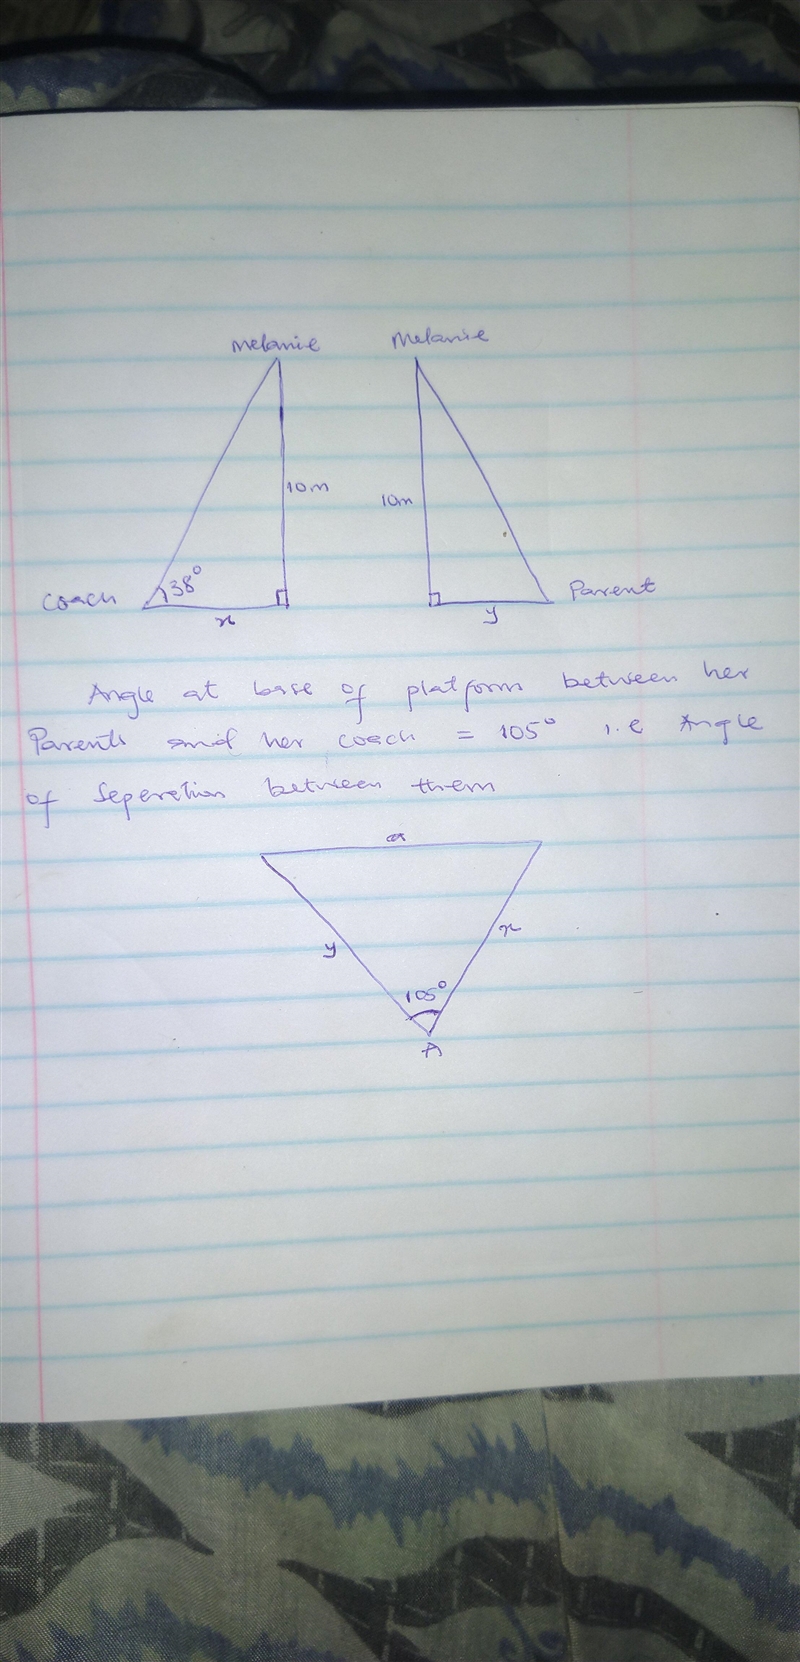 Melanie Melanie
10m
10m
38°
Coach
x
y
Parent
Angle at base of platform between her
Parents and her coach = 105° i.e Angle
of Seperation between them
a
y
x
105°
A